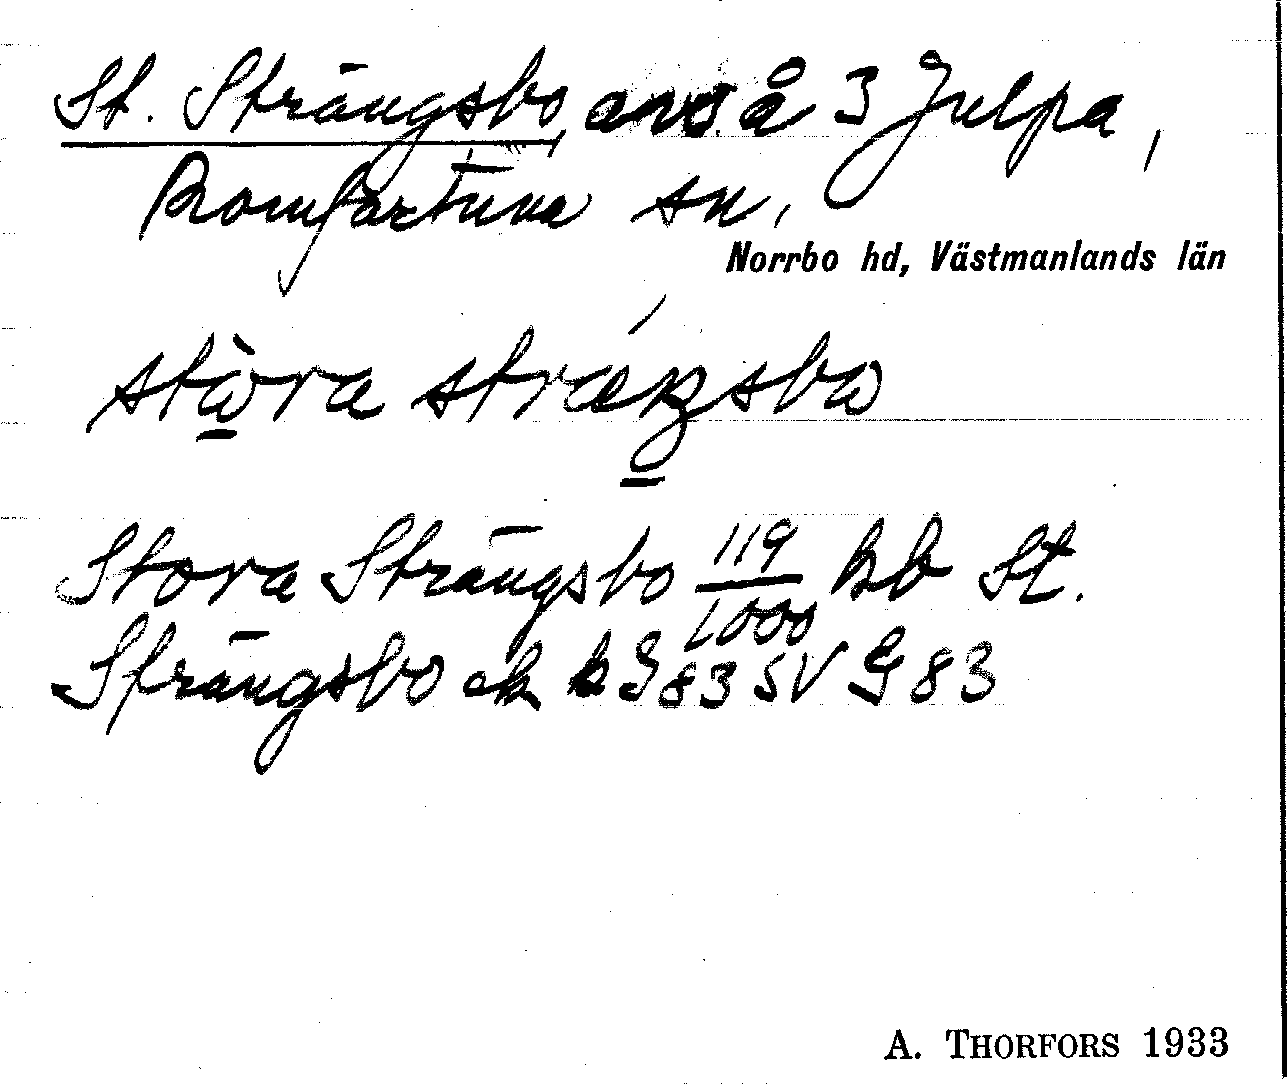 St. Strängsbo, avs. å 3 Julpa,
Romfartuna sn,
Norrbo hd, Västmanlands län
stòra stráŋsbo
Stora Strängsbo 119/1000 kb St.
Strängsbo ek k G 83 SV G 83
A. THORFORS 1933